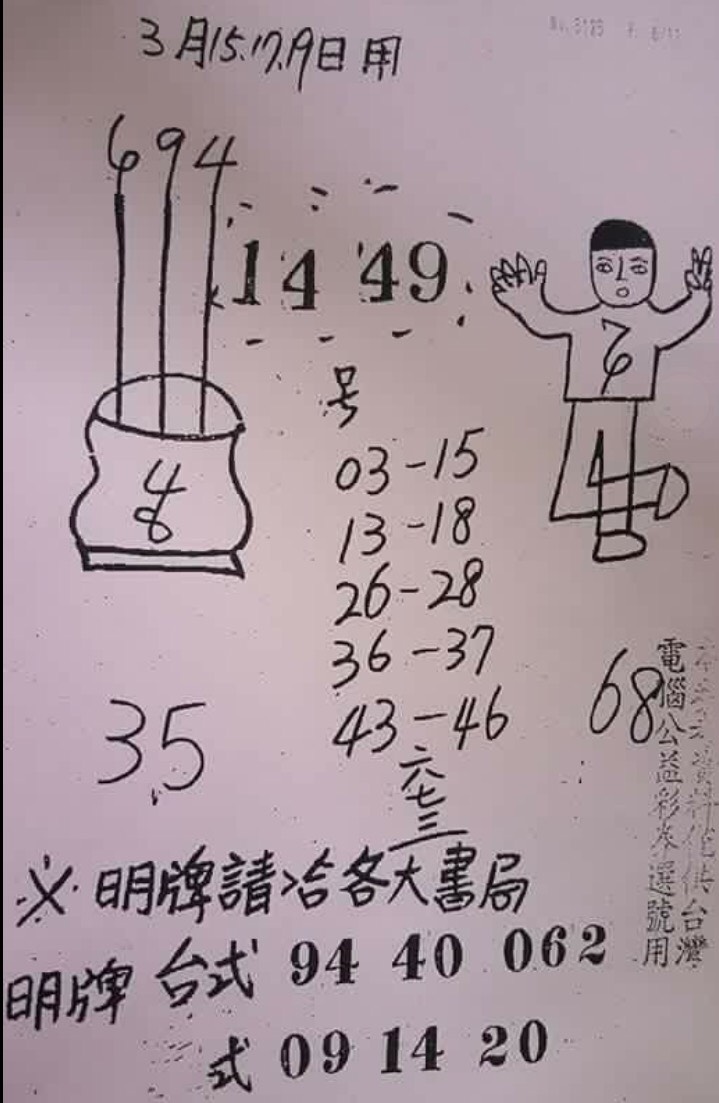 3月15.17.19日用
6 9 4
14 49
7
6
号
03-15
13-18
26-28
36-37
43-46
4
8
1
35
68
六
七
三
※明牌請洽各大書局
明牌 台式 94 40 062
式 09 14 20
資料僅供台灣
電腦公益彩券選號用